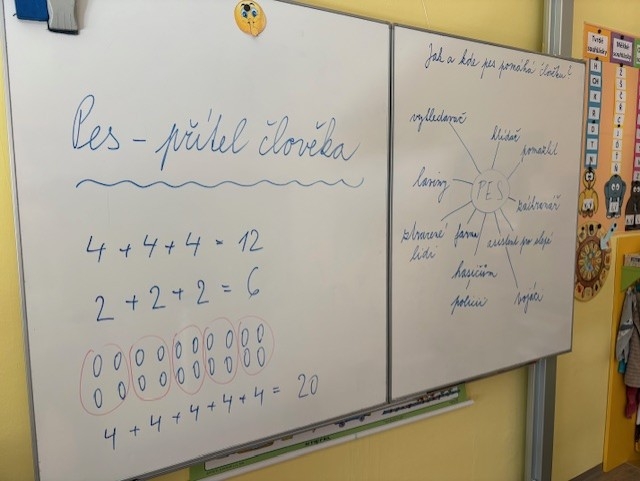 Pes – přítel člověka
4 + 4 + 4 = 12
2 + 2 + 2 = 6
4 + 4 + 4 + 4 + 4 = 20
Jak a kde pes pomáhá člověku?
vyhledávač
hlídač
pomazlit
laviny
PES
záchranář
ztracené
lidi
farma
asistent pro slepé
hasičům
policie
vojáci
Tvrdé
souhlásky
H
CH
K
R
D
T
N
Měkké
souhlásky
Ž
Š
Č
Ř
C
J